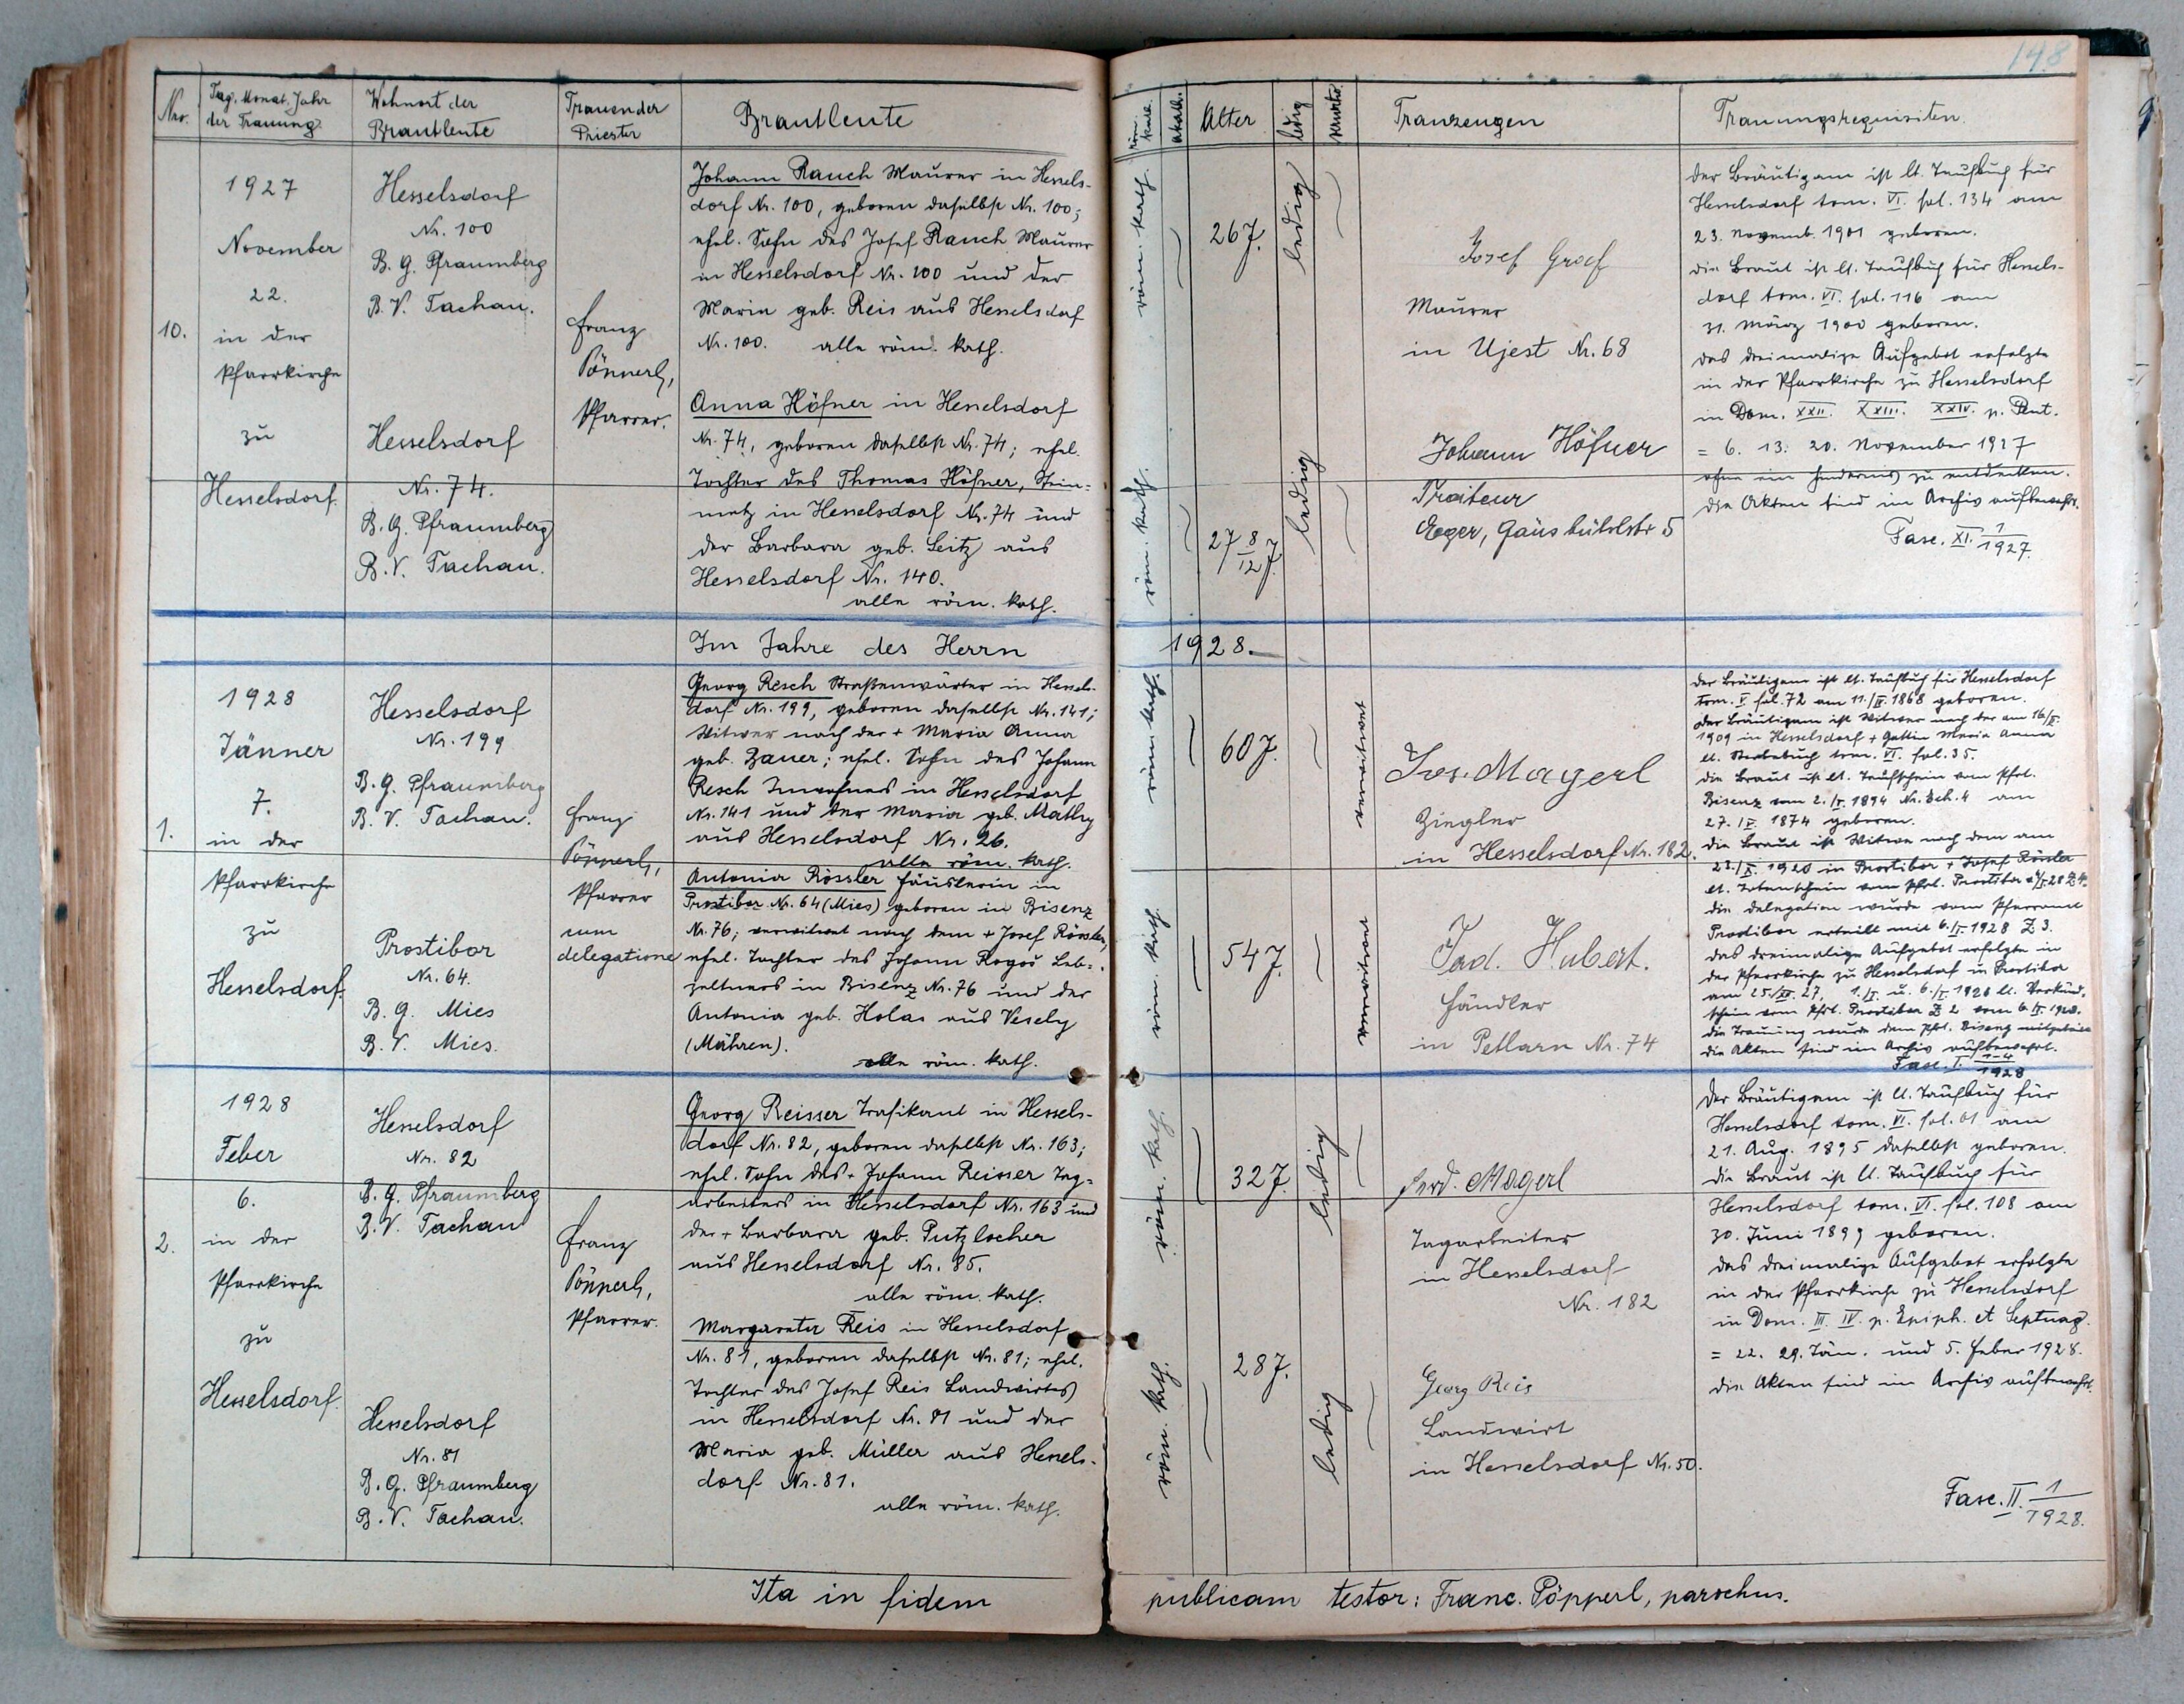 148
Nro.
Tag, Monat, Jahr
der Trauung
Wohnort der
Brautleute
Trauender
Priester
Brautleute
röm. kath.
akath.
Alter
ledig
verwitw.
Trauzeugen
Trauungsrequisiten.
10.
1927
November
22.
in der
Pfarrkirche
zu
Hesselsdorf.
Hesselsdorf
Nr. 100
B. G. Pfraumberg
B. V. Tachau.
Hesselsdorf
Nr. 74.
B. G. Pfraumberg
B. V. Tachau.
Franz
Pöpperl,
Pfarrer.
Johann Rauch Maurer in Hessels-
dorf Nr. 100, geboren daselbst Nr. 100;
ehel. Sohn des Josef Rauch Maurer
in Hesselsdorf Nr. 100 und der
Maria geb. Reis aus Hesselsdorf
Nr. 100. alle röm. kath.
Anna Höfner in Hesselsdorf
Nr. 74, geboren daselbst Nr. 74; ehel.
Tochter des Thomas Höfner, Stein-
metz in Hesselsdorf Nr. 74 und
der Barbara geb. Seitz aus
Hesselsdorf Nr. 140.
alle röm. kath.
röm. kath.
26 J.
ledig
röm. kath.
27 8/12 J.
ledig
Josef Graf
Maurer
in Ujest Nr. 68
Johann Höfner
Traiteur
Eger, Gänsbühlstr 5
Der Bräutigam ist lt. Taufbuch für
Hesselsdorf tom. VI. fol. 134 am
23. Novemb. 1901 geboren.
Die Braut ist lt. Taufbuch für Hessels-
dorf tom. VI. fol. 116 am
31. März 1900 geboren.
Das dreimalige Aufgebot erfolgte
in der Pfarrkirche zu Hesselsdorf
in Dom. XXII. XXIII. XXIV. p. Pent.
= 6. 13. 20. November 1927
ohne ein Hindernis zu entdecken.
Die Akten sind im Archiv aufbewahrt.
Fasc. XI. 1/1927.
Im Jahre des Herrn 1928.
1.
1928
Jänner
7.
in der
Pfarrkirche
zu
Hesselsdorf.
Hesselsdorf
Nr. 199
B. G. Pfraumberg
B. V. Tachau.
Prostibor
Nr. 64.
B. G. Mies
B. V. Mies.
Franz
Pöpperl,
Pfarrer
cum
delegatione
Georg Resch Straßenwärter in Hessels-
dorf Nr. 199, geboren daselbst Nr. 141;
Witwer nach der + Maria Anna
geb. Zauer; ehel. Sohn des Johann
Resch Inwohners in Hesselsdorf
Nr. 141 und der Maria geb. Mathy
aus Hesselsdorf Nr. 26.
alle röm. kath.
Antonia Rössler Häuslerin in
Prostibor Nr. 64 (Mies) geboren in Bisenz
Nr. 76; verwitwet nach dem + Josef Rössler,
ehel. Tochter des Johann Rogos Leb-
zeltners in Bisenz Nr. 76 und der
Antonia geb. Holas aus Vesely
(Mähren).
alle röm. kath.
röm. kath.
60 J.
verwitwet
röm. kath.
54 J.
verwitwet
Jos. Mayerl
Ziegler
in Hesselsdorf Nr. 182.
Tad. Hubert.
Händler
in Petlarn Nr. 74
Der Bräutigam ist lt. Taufbuch für Hesselsdorf
tom. V. fol. 72 am 11./II. 1868 geboren.
Der Bräutigam ist Witwer nach der am 16./
1909 in Hesselsdorf + Gattin Maria Anna
lt. Sterbebuch tom. VI. fol. 35.
Die Braut ist lt. Taufschein vom Pfrt.
Bisenz vom 2./ 1894 Nr. Exh. 4 am
27./V. 1874 geboren.
Die Braut ist Witwe nach dem am
1920 in Prostibor + Josef Rössler
lt. Totenschein vom Pfrt. Prostibor
Die Delegation wurde vom Pfarramt
Prostibor erteilt mit 6./I. 1928 Z 3.
Das dreimalige Aufgebot erfolgte in
der Pfarrkirche zu Hesselsdorf u. Prostibor
am 25./XII. 27, 1./I. u. 6./I. 1928 lt. Verkünd-
schein vom Pfrt. Prostibor Z 2 vom 6. I. 1928.
Die Trauung wurde dem Pfrt. Bisenz mitgeteilt
Die Akten sind im Archiv aufbewahrt.
Fasc. I. 1-4/1928
2.
1928
Feber
6.
in der
Pfarrkirche
zu
Hesselsdorf.
Hesselsdorf
Nr. 82
B. G. Pfraumberg
B. V. Tachau
Hesselsdorf
Nr. 81
B. G. Pfraumberg
B. V. Tachau.
Franz
Pöpperl,
Pfarrer.
Georg Reisser Trafikant in Hessels-
dorf Nr. 82, geboren daselbst Nr. 163;
ehel. Sohn des + Johann Reisser Tag-
arbeiters in Hesselsdorf Nr. 163 und
der + Barbara geb. Putzlocher
aus Hesselsdorf Nr. 85.
alle röm. kath.
Margareta Reis in Hesselsdorf
Nr. 81, geboren daselbst Nr. 81; ehel.
Tochter des Josef Reis Landwirtes
in Hesselsdorf Nr. 81 und der
Maria geb. Müller aus Hessels-
dorf Nr. 81.
alle röm. kath.
röm. kath.
32 J.
ledig
röm. kath.
28 J.
ledig
Ferd. Magerl
Tagarbeiter
in Hesselsdorf
Nr. 182
Georg Reis
Landwirt
in Hesselsdorf Nr. 50.
Der Bräutigam ist lt. Taufbuch für
Hesselsdorf tom. VI. fol. 61 am
21. Aug. 1895 daselbst geboren.
Die Braut ist lt. Taufbuch für
Hesselsdorf tom. VI. fol. 108 am
30. Juni 1899 geboren.
Das dreimalige Aufgebot erfolgte
in der Pfarrkirche zu Hesselsdorf
in Dom. III. IV. p. Epiph. et Septuag.
= 22. 29. Jän. und 5. Feber 1928.
Die Akten sind im Archiv aufbewahrt.
Fasc. II. 1/1928.
Ita in fidem publicam testor: Franc. Pöpperl, parochus.